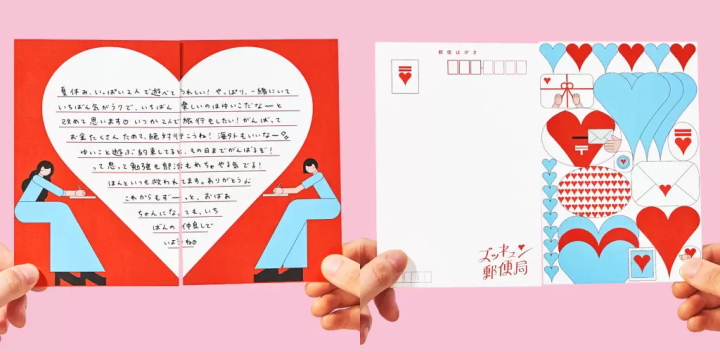 夏休み、いっぱい2人で遊べてうれしい! やっぱり、一緒にいて
いちばん気がラクで、いちばん 楽しいのはゆいこだな〜と
改めて思います◎ いつか2人で旅行もしたい! がんばって
お金たくさん ためて、絶対行こうね! 海外もいいな〜
ゆいこと遊ぶ約束してると、その日までがんばるぞ!
って思って勉強も部活もめちゃやる気でる!
ほんといつも救われてます。ありがとう♪
これからもず〜っと、おばあ
ちゃんになっても、いち
ばんの 仲良しで
いようね◎
郵便はがき
ズッキュン
郵便局